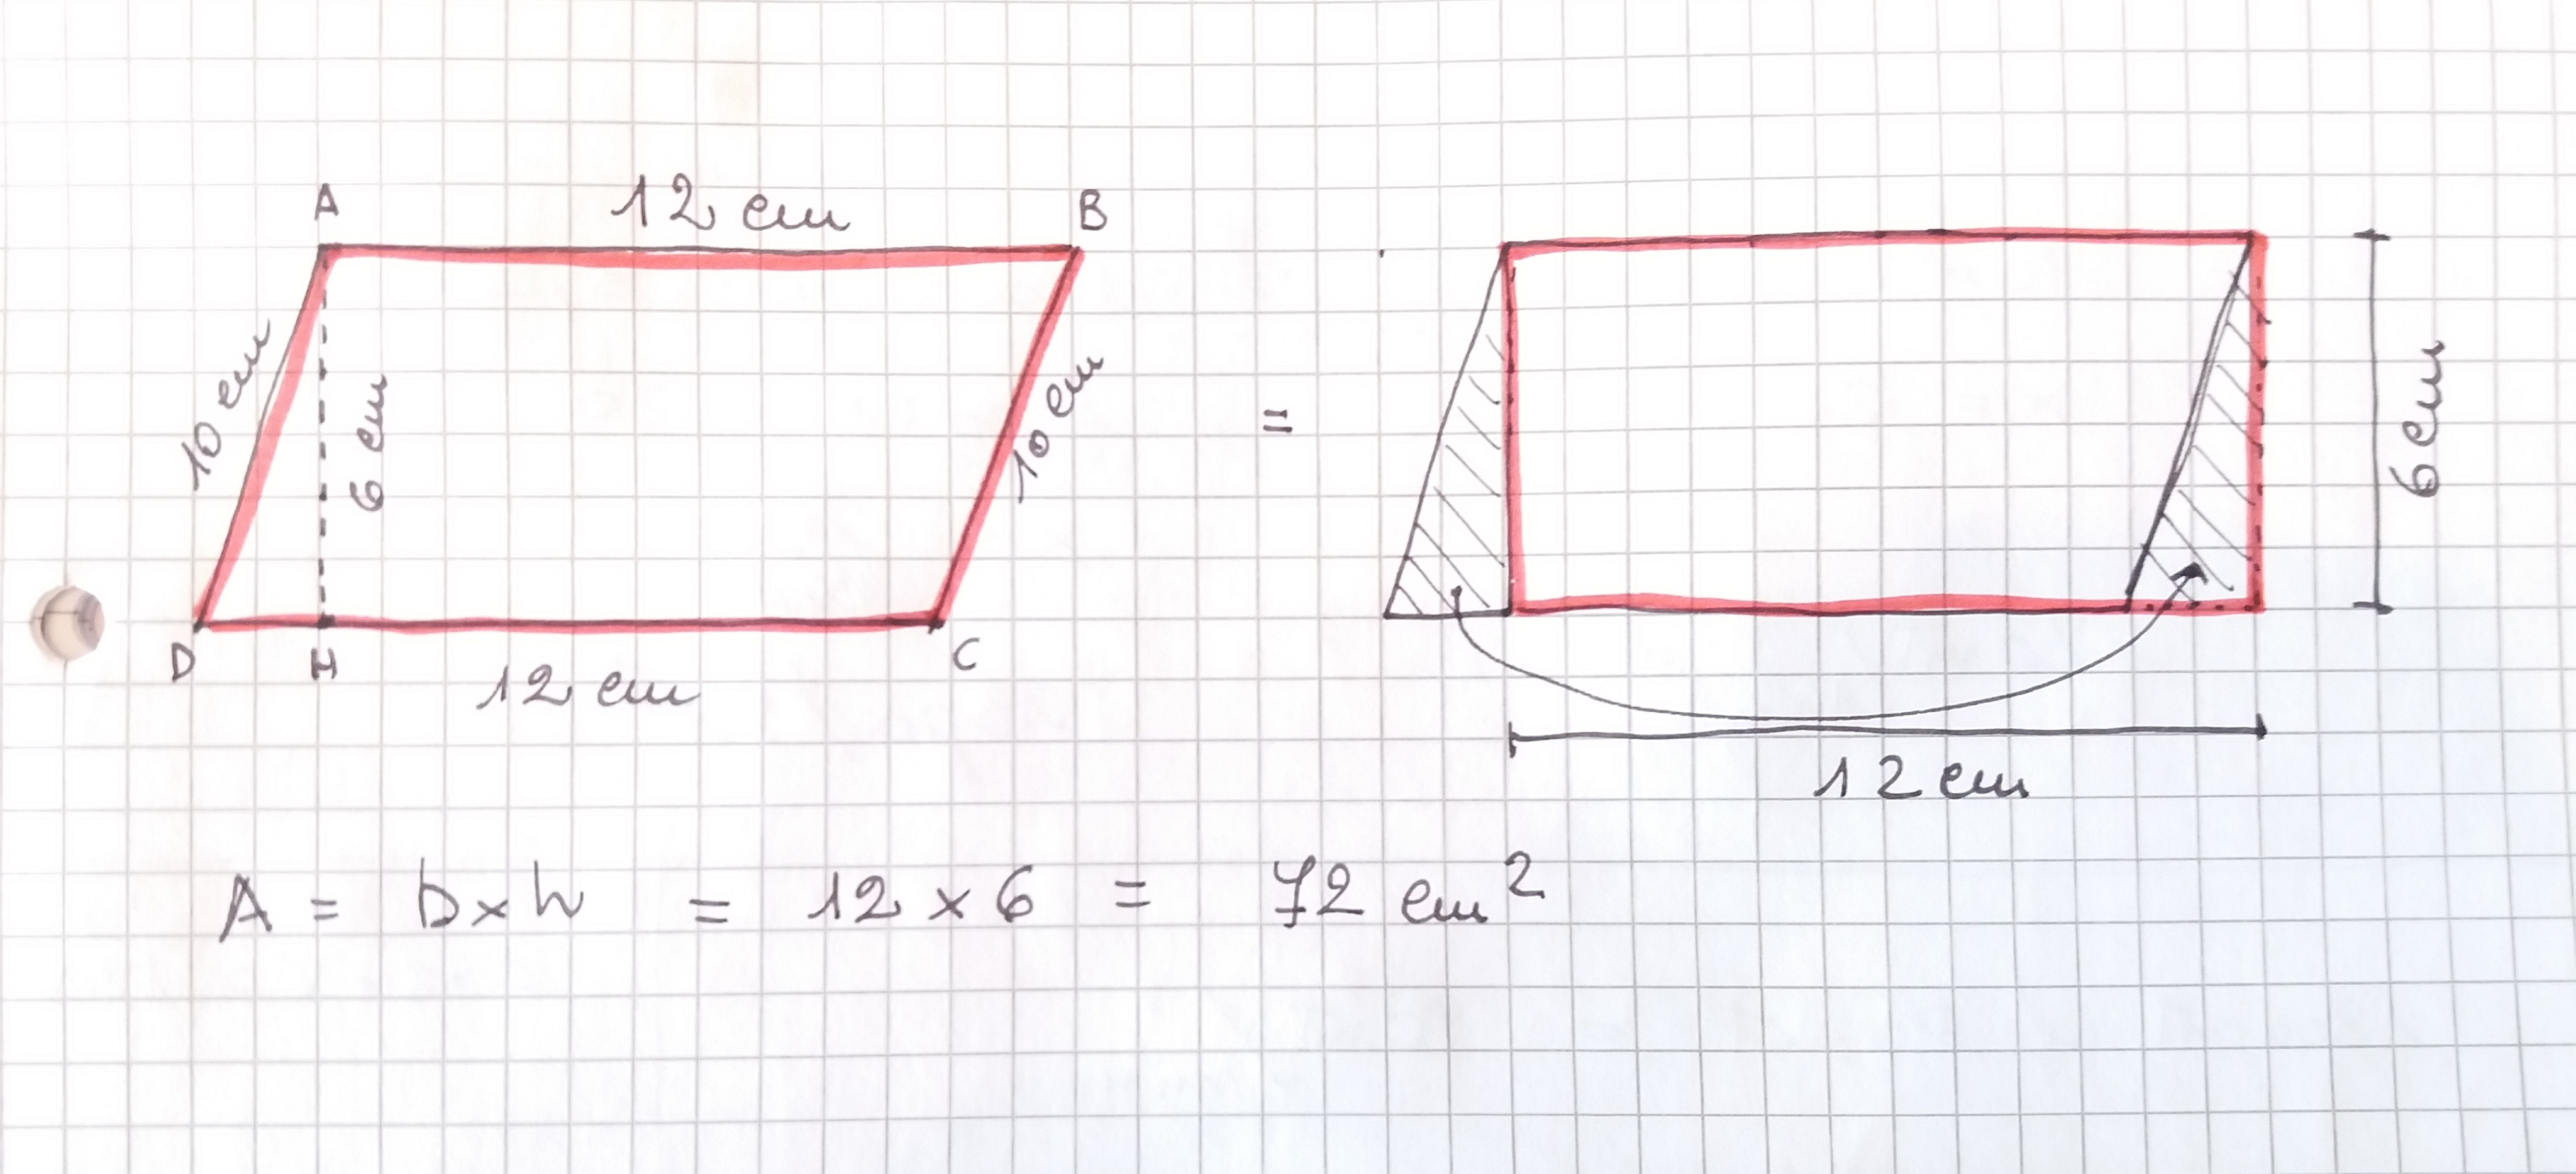 A
12 cm
B
10 cm
6 cm
10 cm
D
H
C
12 cm
=
6 cm
12 cm
A = b x h = 12 x 6 = 72 cm²